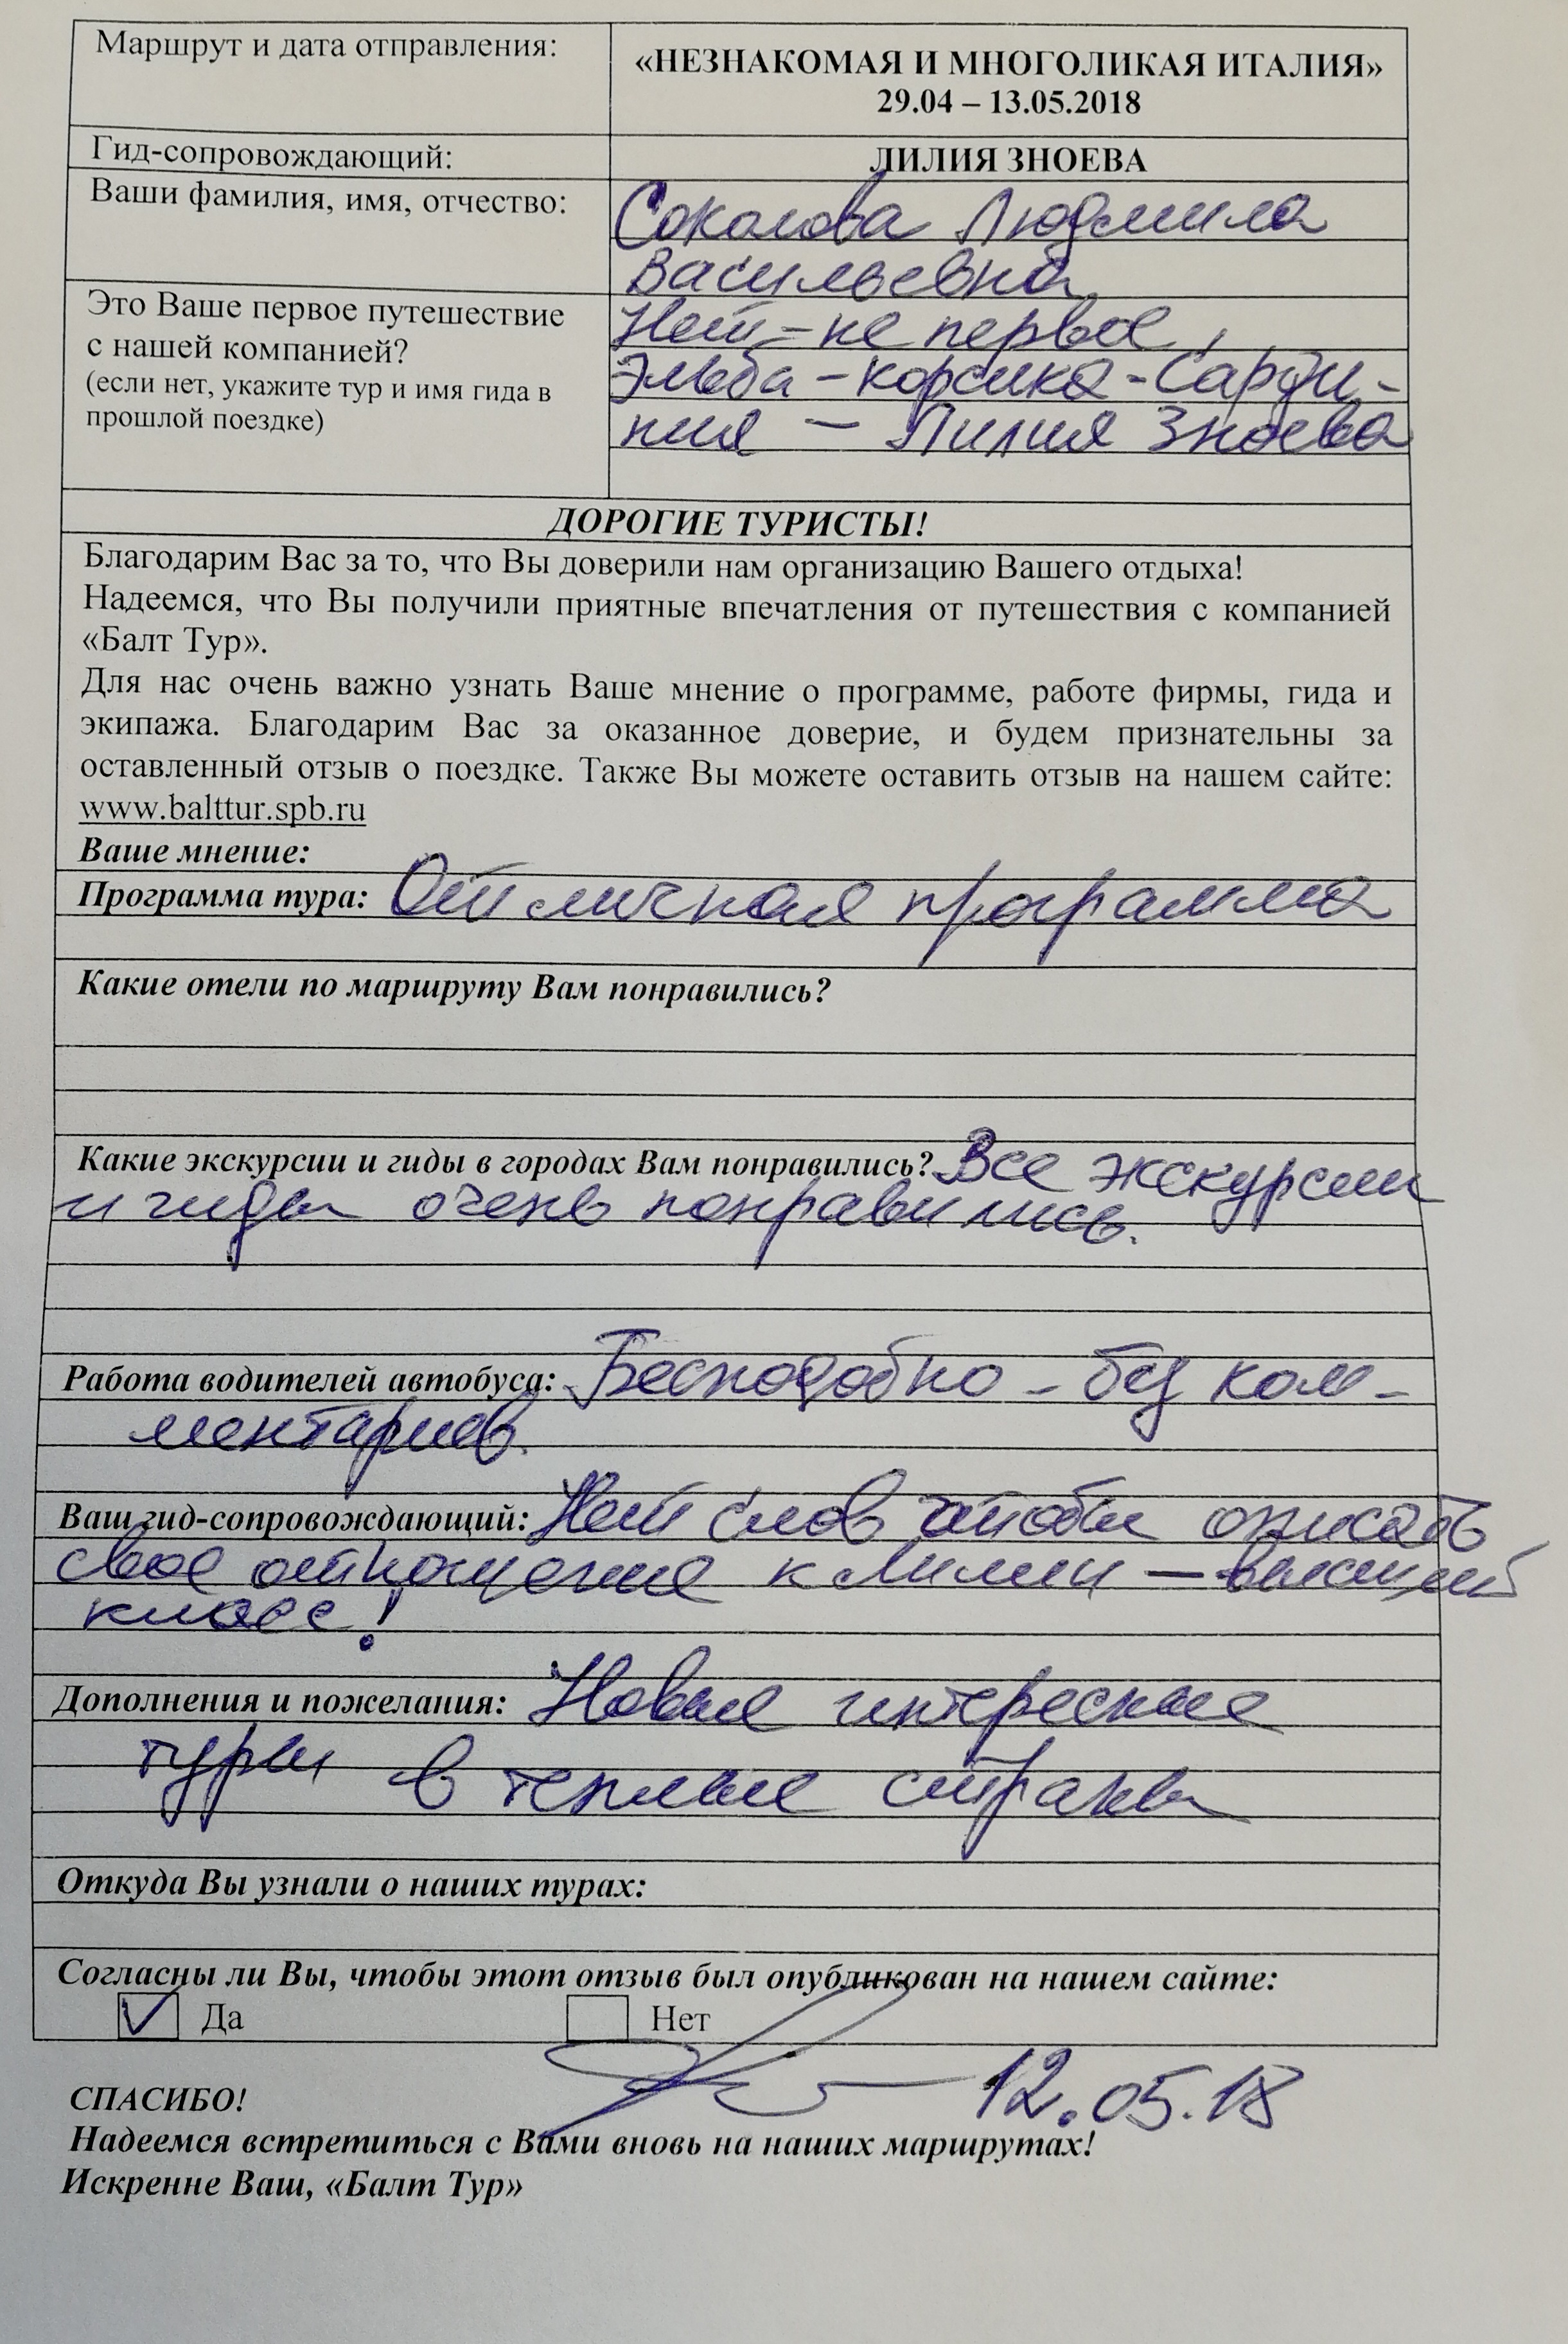 Маршрут и дата отправления:
«НЕЗНАКОМАЯ И МНОГОЛИКАЯ ИТАЛИЯ»
29.04 – 13.05.2018
Гид-сопровождающий:
ЛИЛИЯ ЗНОЕВА
Ваши фамилия, имя, отчество:
Соколова Людмила
Васильевна
Это Ваше первое путешествие
с нашей компанией?
(если нет, укажите тур и имя гида в
прошлой поездке)
Нет - не первое,
Эльба - Корсика - Сарди-
ния - Лилия Зноева
ДОРОГИЕ ТУРИСТЫ!
Благодарим Вас за то, что Вы доверили нам организацию Вашего отдыха!
Надеемся, что Вы получили приятные впечатления от путешествия с компанией
«Балт Тур».
Для нас очень важно узнать Ваше мнение о программе, работе фирмы, гида и
экипажа. Благодарим Вас за оказанное доверие, и будем признательны за
оставленный отзыв о поездке. Также Вы можете оставить отзыв на нашем сайте:
www.balttur.spb.ru
Ваше мнение:
Программа тура: Отличная программа
Какие отели по маршруту Вам понравились?
Какие экскурсии и гиды в городах Вам понравились? Все экскурсии
и гиды очень понравились.
Работа водителей автобуса: Бесподобно - без ком-
ментариев.
Ваш гид-сопровождающий: Нет слов чтобы описать
свое отношение к Лилии — высший
класс!
Дополнения и пожелания: Новые интересные
туры в теплые страны
Откуда Вы узнали о наших турах:
Согласны ли Вы, чтобы этот отзыв был опубликован на нашем сайте:
Да Нет
12.05.18
СПАСИБО!
Надеемся встретиться с Вами вновь на наших маршрутах!
Искренне Ваш, «Балт Тур»